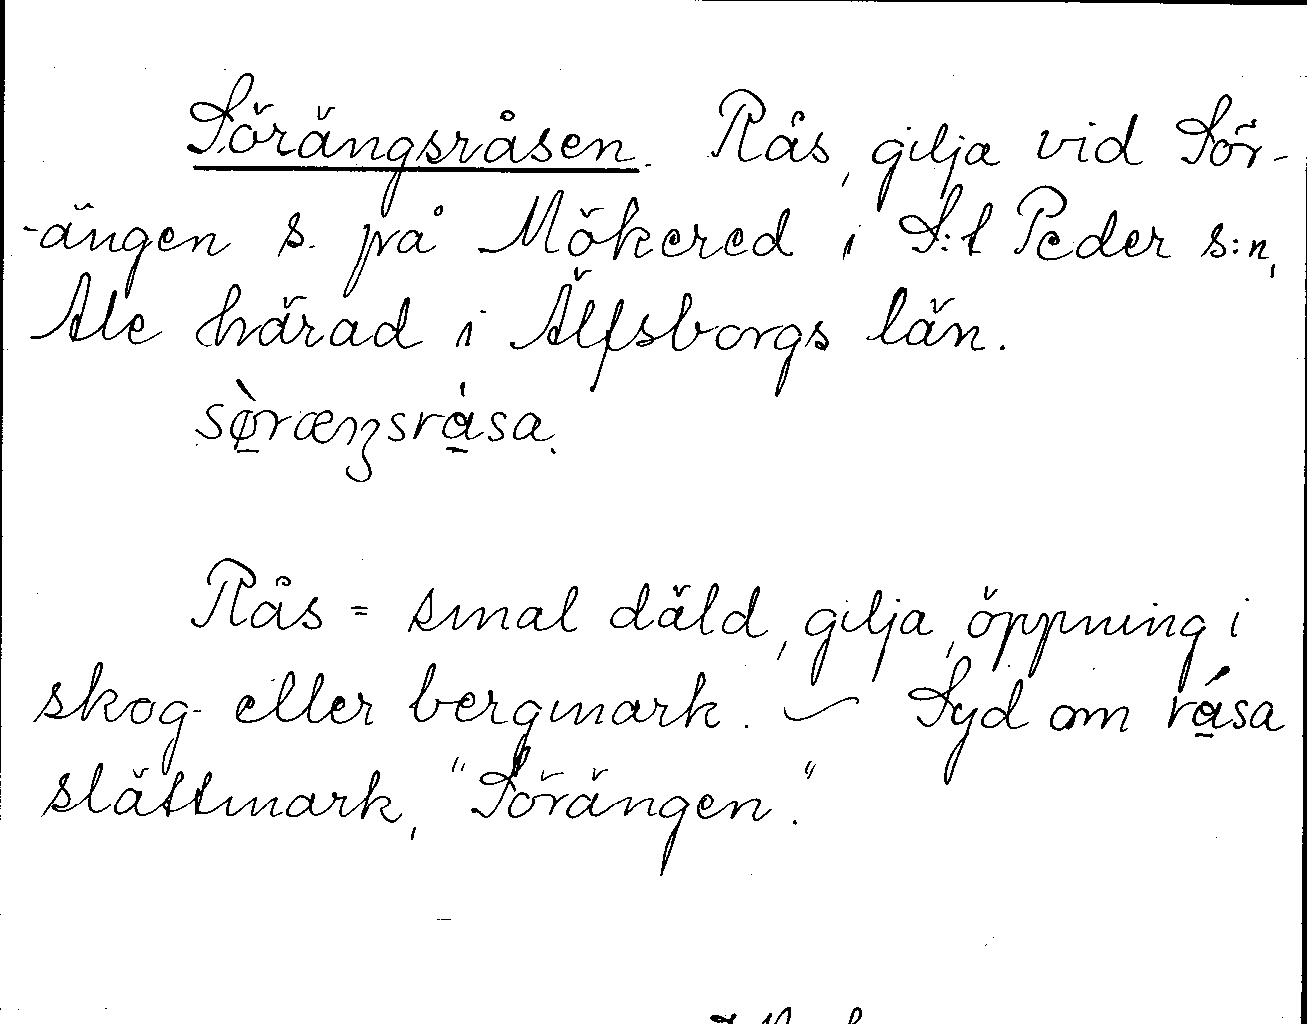 Sörängsråsen. Rås, gilja vid Sör-
-ängen s. på Mökered i S:t Peder s:n,
Ale härad i Älfsborgs län.
sø̀ræŋsrása.
Rås = smal däld, gilja, öppning i
skog- eller bergmark. — Syd om rása
slåttmark, "Sörängen".